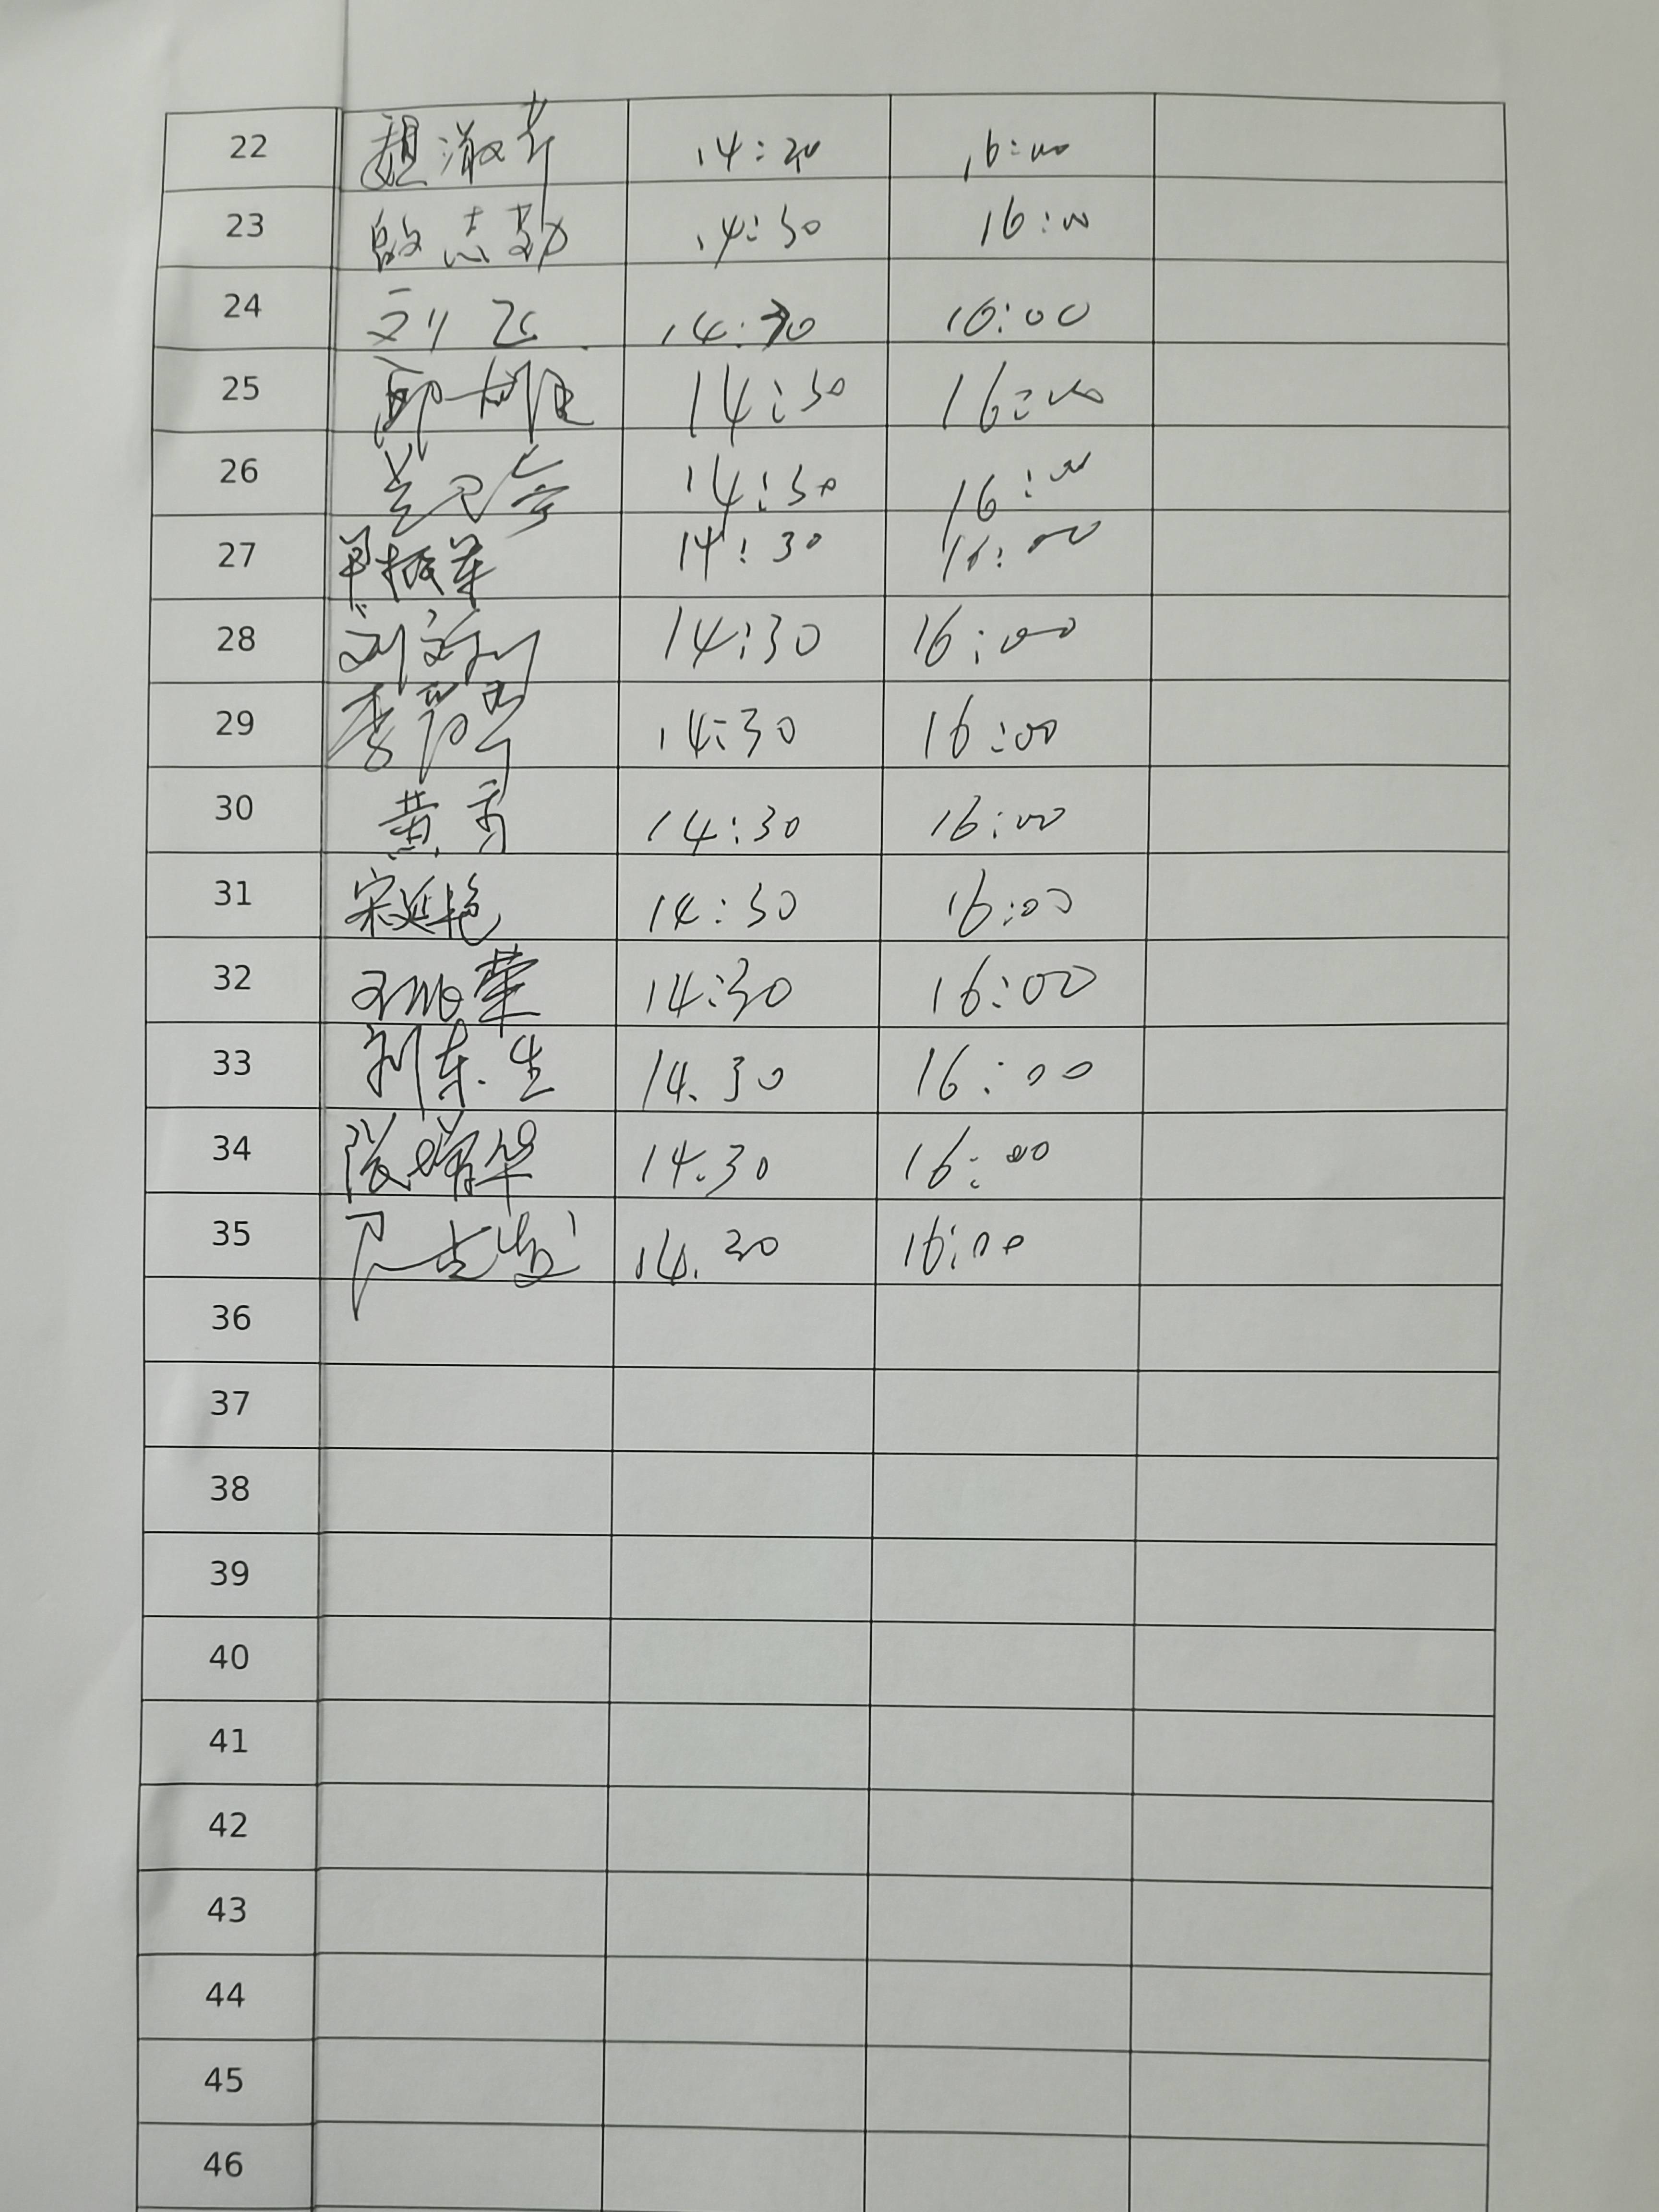 22 14:20 16:00
23 志勤 14:30 16:00
24 刘飞 14:30 16:00
25 14:30 16:00
26 14:30 16:00
27 单振华 14:30 16:00
28 刘 14:30 16:00
29 李 14:30 16:00
30 黄秀 14:30 16:00
31 宋延艳 14:30 16:00
32 荣 14:30 16:00
33 刘东生 14.30 16:00
34 张 14:30 16:00
35 14.30 16:00
36
37
38
39
40
41
42
43
44
45
46